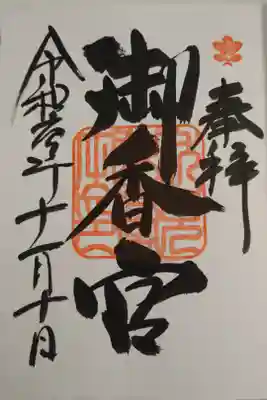 奉拝
御香宮
令和年十一月十日